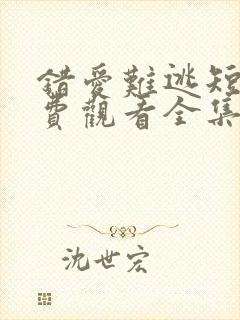 錯愛難逃短
費觀看全集
沈世宏